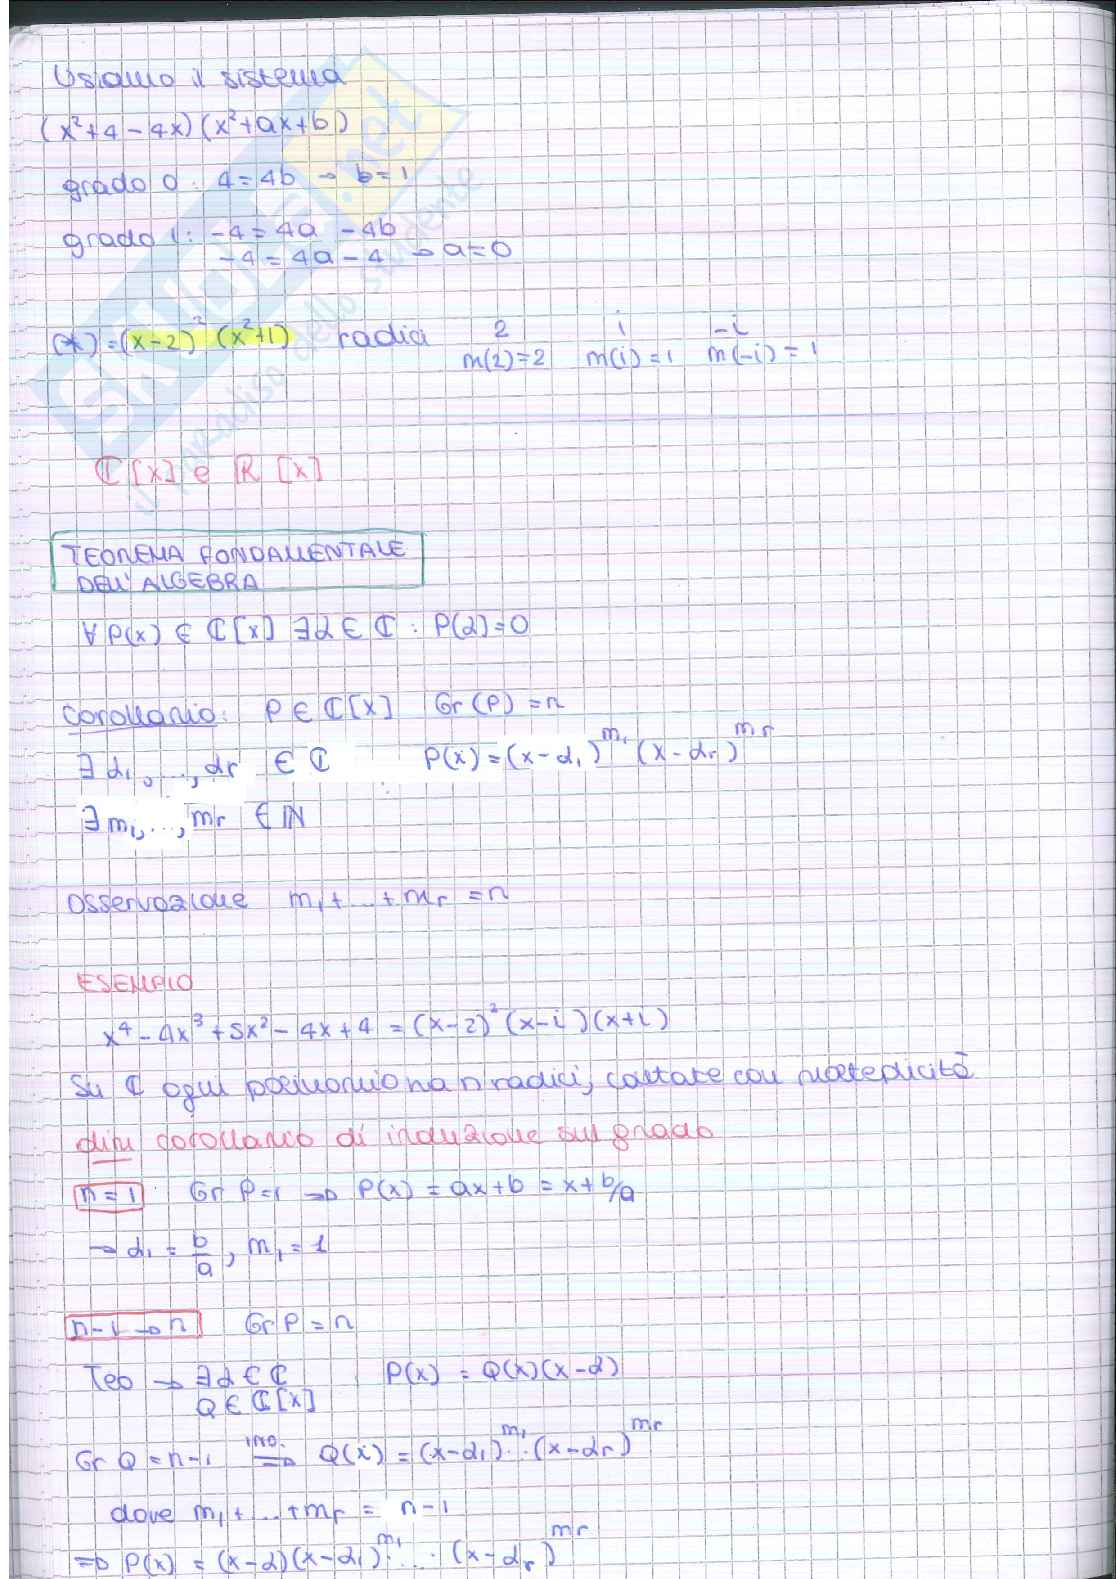 Usiamo il sistema
(x²+4-4x)(x²+ax+b)
grado 0: 4=4b → b=1
grado 1: -4=4a-4b
-4=4a-4 → a=0
(*)=(x-2)²(x²+1) radici 2 i -i
m(2)=2 m(i)=1 m(-i)=1
ℂ[x] e ℝ[x]
TEOREMA FONDAMENTALE
DELL'ALGEBRA
∀P(x) ∈ ℂ[x] ∃α ∈ ℂ : P(α)=0
Corollario: P∈ℂ[x] Gr(P)=n
∃α₁,...,αr ∈ ℂ P(x)=(x-α₁)^m₁ (x-αr)^mr
∃m₁,...,mr ∈ ℕ
Osservazione m₁+...+mr=n
ESEMPIO
x⁴-4x³+5x²-4x+4=(x-2)²(x-i)(x+i)
Su ℂ ogni polinomio ha n radici, contate con molteplicità
dim corollario di induzione sul grado
n=1 Gr P=1 ⇒ P(x)=ax+b=x+b/a
→ α₁=b/a, m₁=1
n-1→n Gr P=n
Teo → ∃α∈ℂ P(x)=Q(x)(x-α)
Q∈ℂ[x]
Gr Q=n-1 ind.⇒ Q(x)=(x-α₁)^m₁...(x-αr)^mr
dove m₁+...+mr=n-1
⇒ P(x)=(x-α)(x-α₁)^m₁·...·(x-αr)^mr